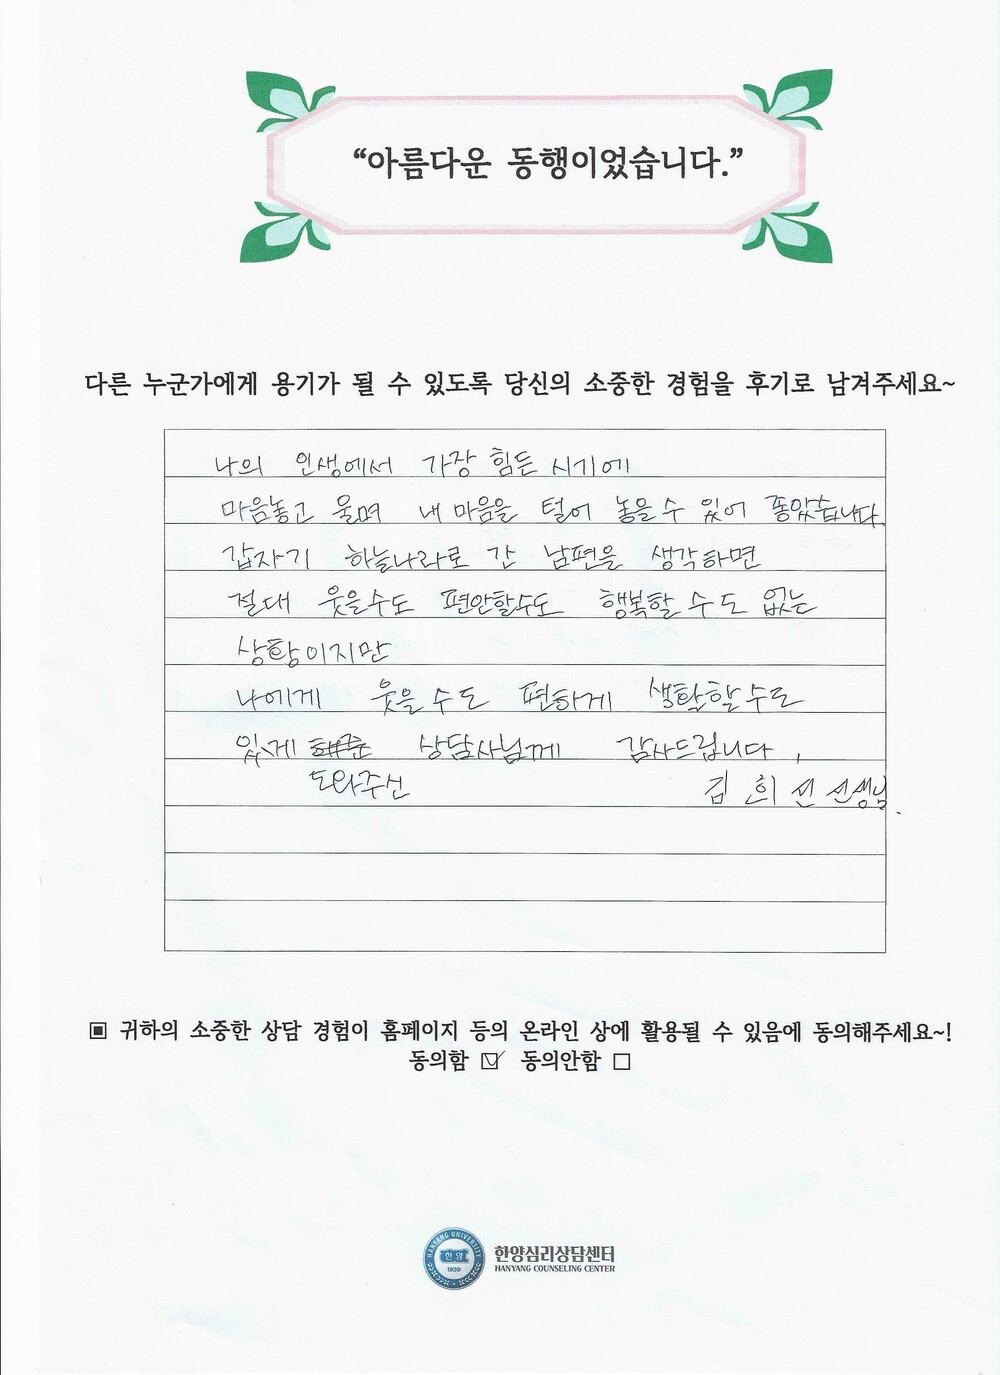 “아름다운 동행이었습니다.”
다른 누군가에게 용기가 될 수 있도록 당신의 소중한 경험을 후기로 남겨주세요~
나의 인생에서 가장 힘든 시기에
마음놓고 울며 내 마음을 털어 놓을 수 있어 좋았습니다.
갑자기 하늘나라로 간 남편을 생각하면
절대 웃을수도 편안할수도 행복할 수도 없는
상황이지만
나에게 웃을 수도 편하게 생활할 수도
있게 상담사님께 감사드립니다,
도와주신 김희선 선생님.
▣ 귀하의 소중한 상담 경험이 홈페이지 등의 온라인 상에 활용될 수 있음에 동의해주세요~!
동의함 ☑ 동의안함 □
HANYANG UNIVERSITY
한양
1939
한양심리상담센터
HANYANG COUNSELING CENTER